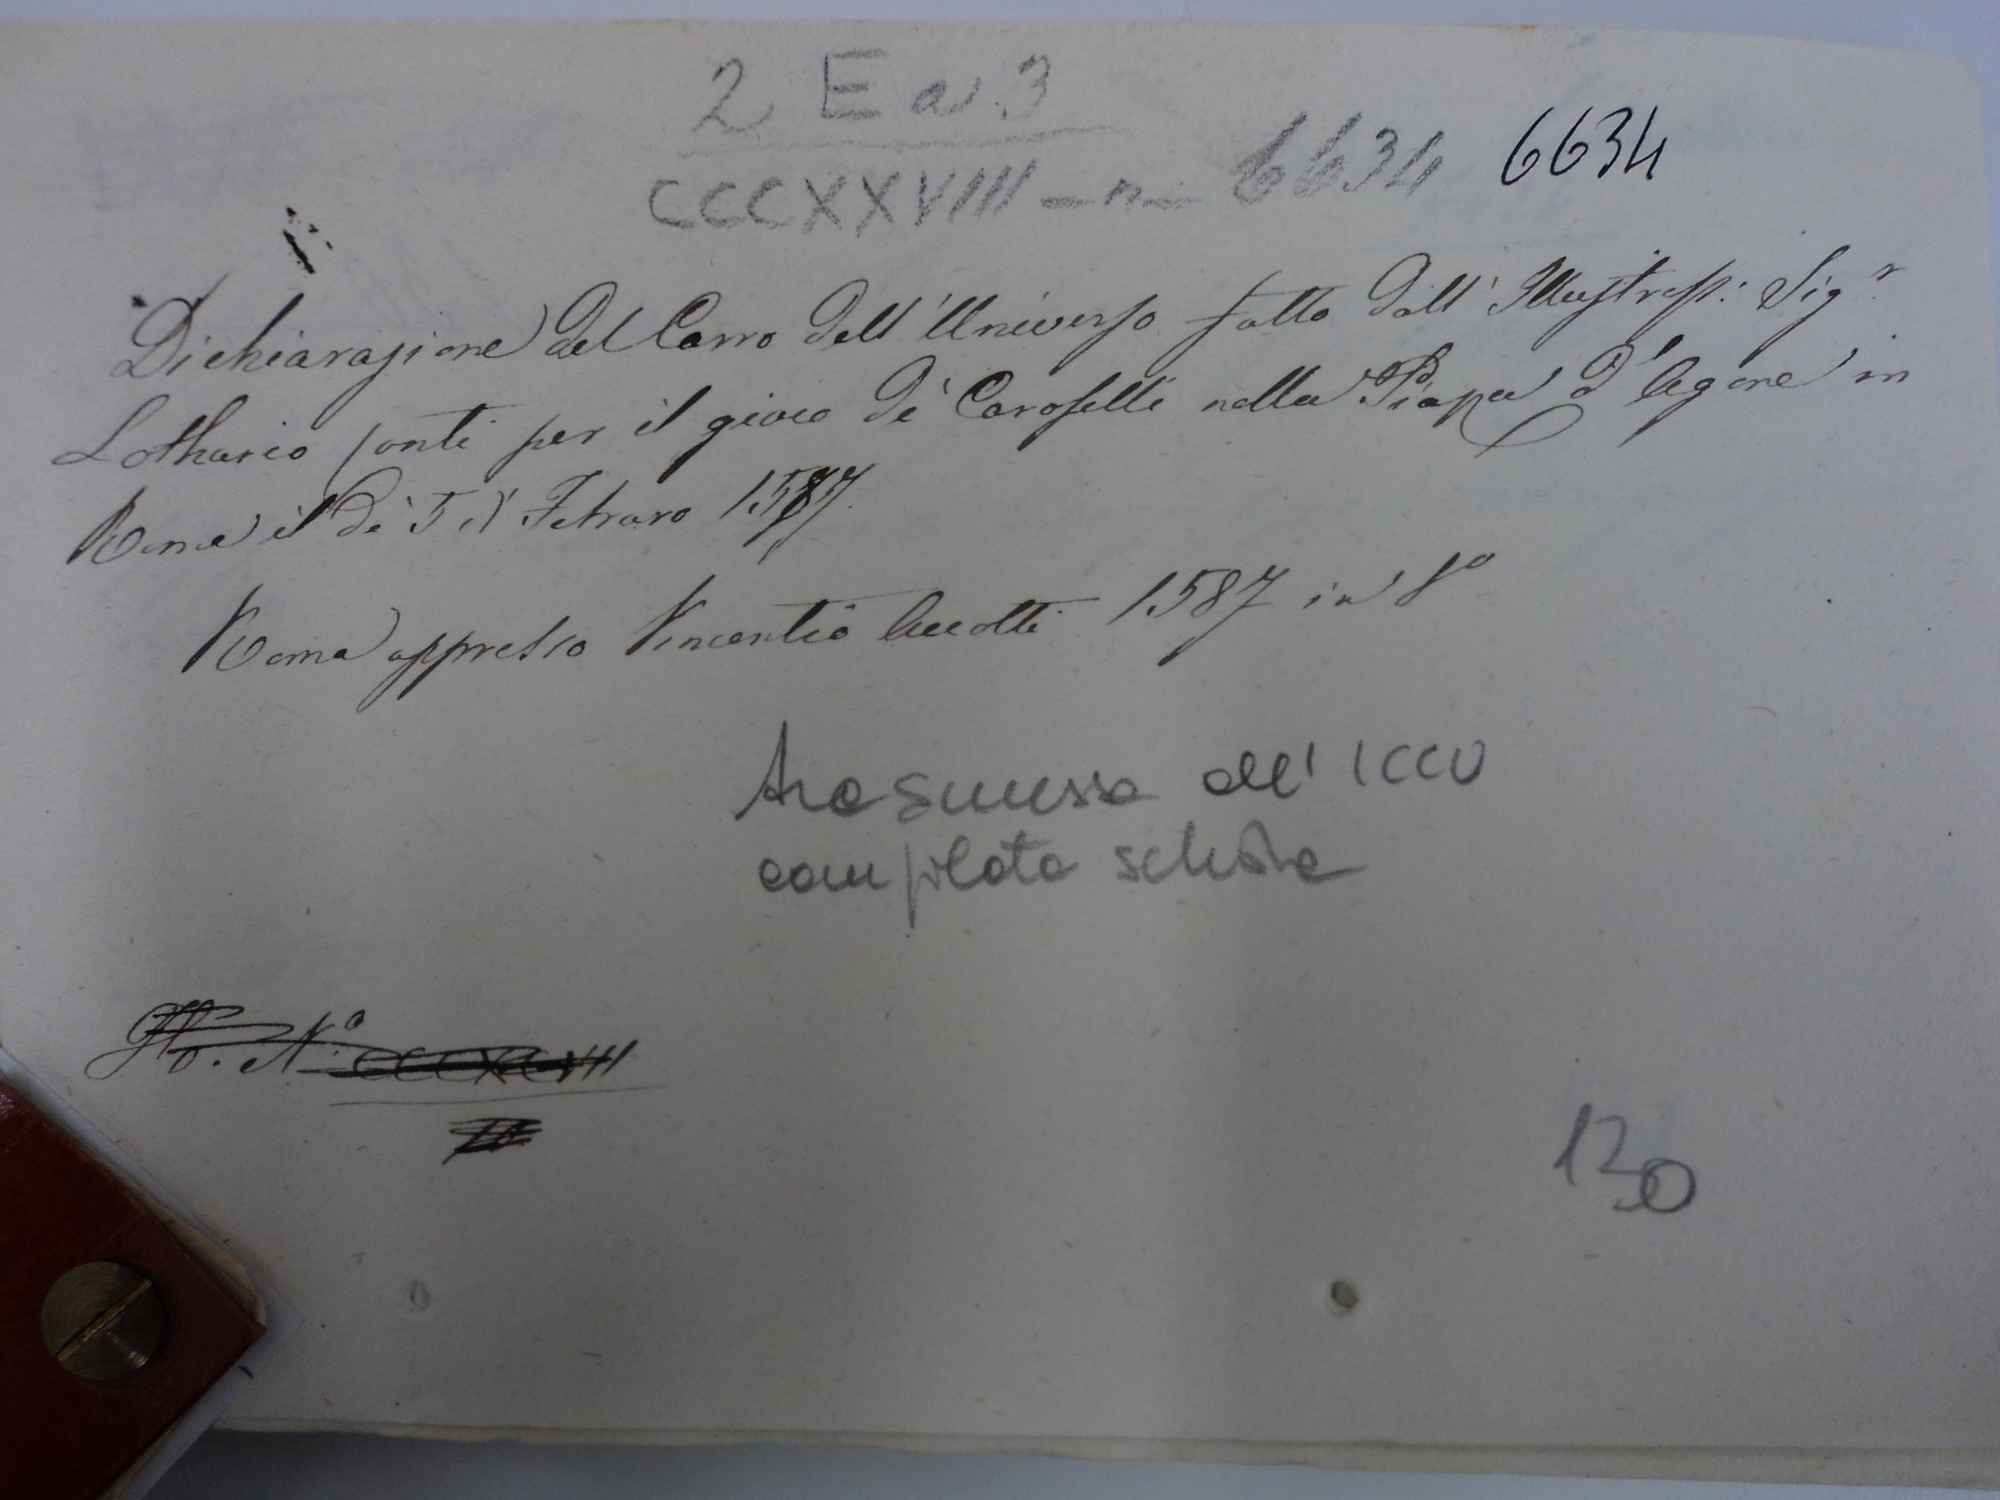 2 E a 3
CCCXXVIII - n - 6634 6634
Dichiarazione del Carro dell'Universo fatto dall' Illustress: Sig.r
Lothario Conti per il gioco de' Caroselli nella Piazza d'Agone in
Roma il dì 5 di Febraro 1587.
Roma appresso Vincentio Accolti 1587 in 8°
trasmessa all'ICCU
compilata scheda
N.° CCCXLVIII
130